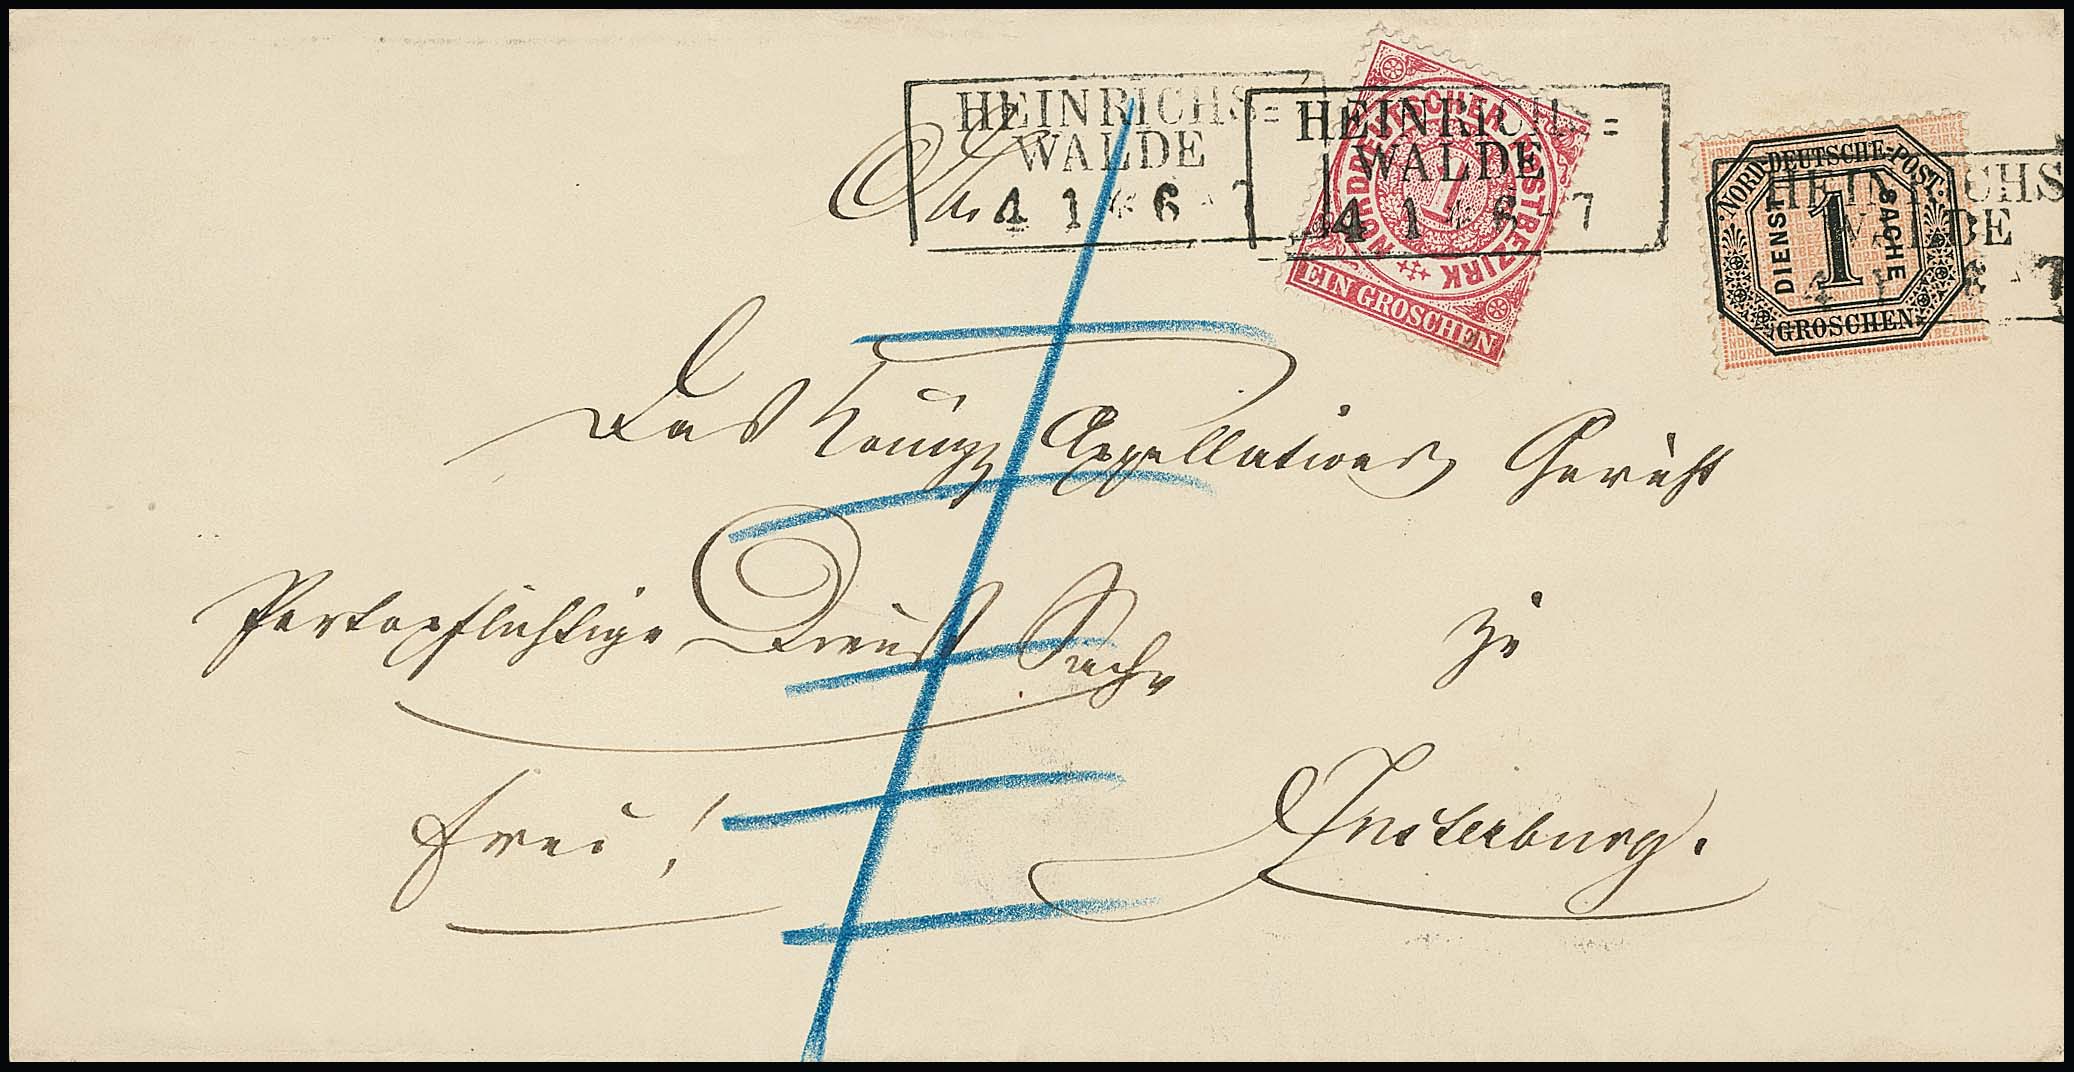 HEINRICHS=
WALDE
4 1 * 6-7
HEINRICHS=
WALDE
4 1 * 6-7
NORDDEUTSCHER POSTBEZIRK
1
EIN GROSCHEN
HEINRICHS
WALDE
4 1 6-7
NORDDEUTSCHE-POST
DIENST SACHE
1
GROSCHEN
An
Das Königl Appellations Gericht
Portopflichtige Dienst Sache
zu
frei!
Insterburg.